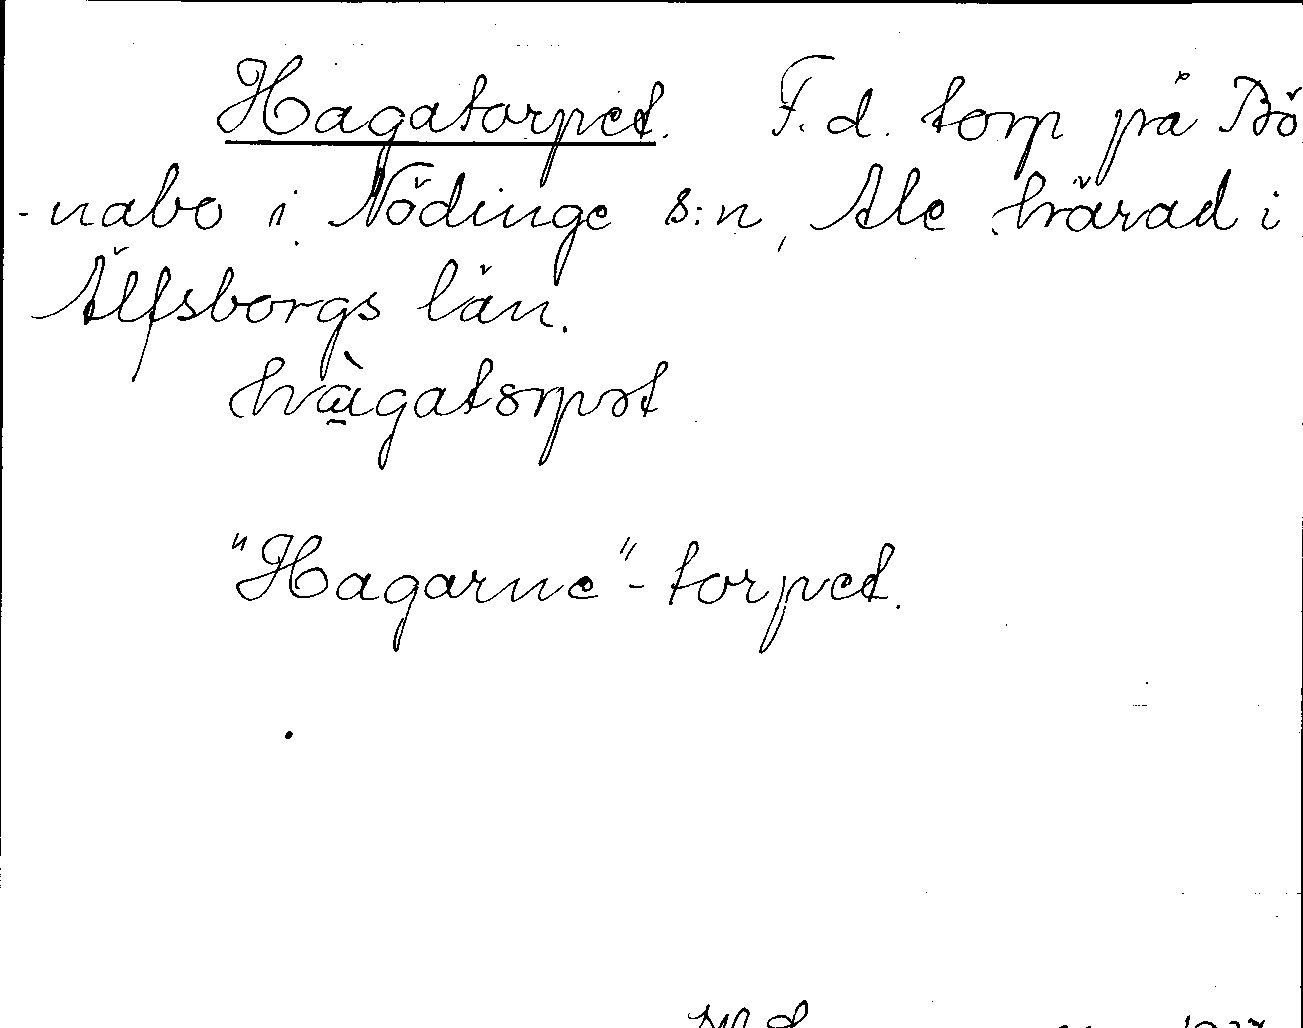 Hagatorpet. F. d. torp på Bö
-nabo i Nödinge s:n, Ale härad i
Älfsborgs län.
"Hagarne"-torpet.